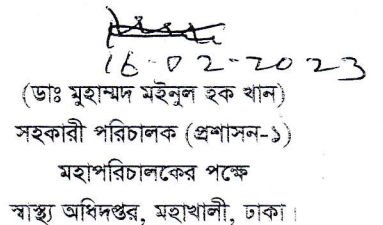 16-02-2023
(ডাঃ মুহাম্মদ মইনুল হক খান)
সহকারী পরিচালক (প্রশাসন-১)
মহাপরিচালকের পক্ষে
স্বাস্থ্য অধিদপ্তর, মহাখালী, ঢাকা।